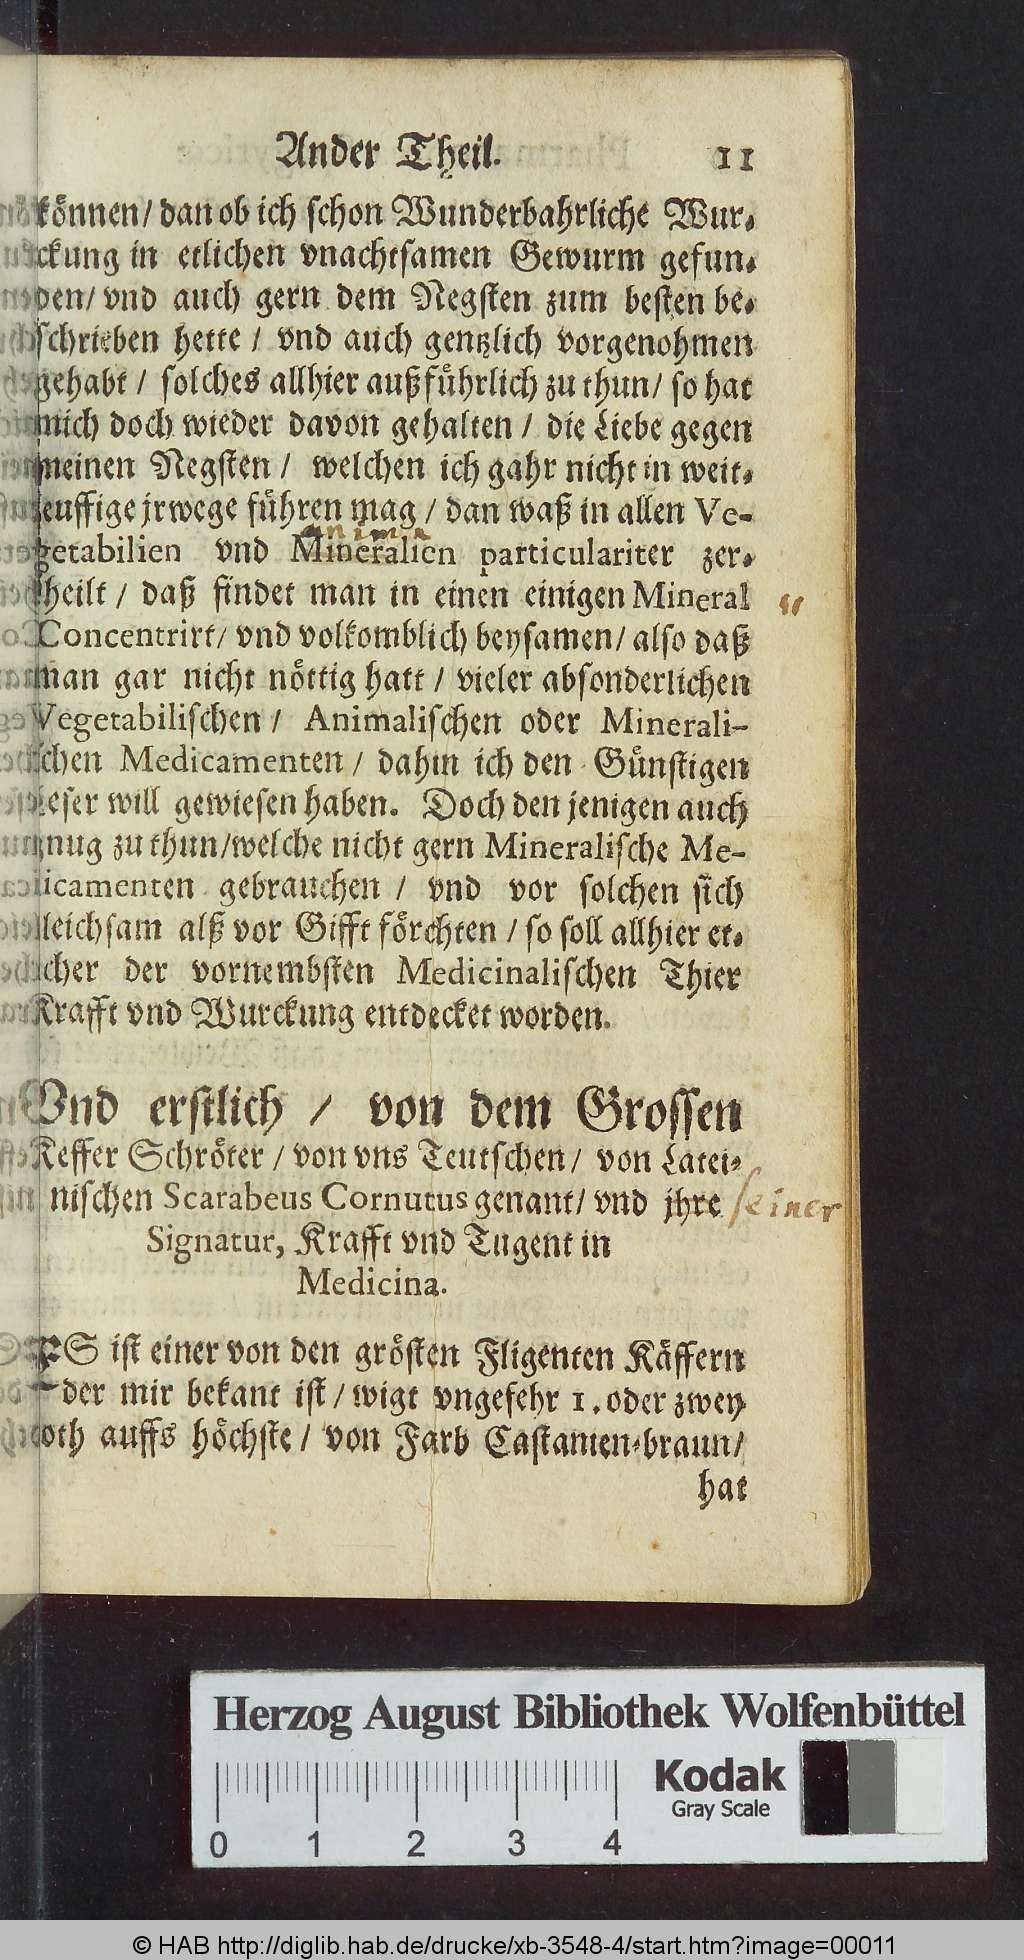 Ander Theil. 11
können/ dan ob ich schon Wunderbahrliche Wur-
ckung in etlichen vnachtsamen Gewurm gefun-
den/ vnd auch gern dem Negsten zum besten be-
schrieben hette / vnd auch gentzlich vorgenohmen
gehabt / solches allhier außführlich zu thun/ so hat
mich doch wieder davon gehalten / die Liebe gegen
meinen Negsten / welchen ich gahr nicht in weit-
leuffige jrwege führen mag / dan waß in allen Ve-
anima
getabilien vnd Mineralien particulariter zer-
theilt / daß findet man in einen einigen Mineral "
Concentrirt/ vnd volkomblich beysamen/ also daß
man gar nicht nöttig hatt / vieler absonderlichen
Vegetabilischen / Animalischen oder Minerali-
schen Medicamenten / dahin ich den Günstigen
Leser will gewiesen haben. Doch den jenigen auch
gnug zu thun/welche nicht gern Mineralische Me-
dicamenten gebrauchen / vnd vor solchen sich
gleichsam alß vor Gifft förchten / so soll allhier et-
licher der vornembsten Medicinalischen Thier
Krafft vnd Wurckung entdecket worden.
Vnd erstlich / von dem Grossen
Keffer Schröter / von vns Teutschen/ von Latei-
nischen Scarabeus Cornutus genant/ vnd jhre seiner
Signatur, Krafft vnd Tugent in
Medicina.
ES ist einer von den grösten Fligenten Käffern
der mir bekant ist / wigt vngefehr 1. oder zwey
Loth auffs höchste / von Farb Castanien-braun/
hat
Herzog August Bibliothek Wolfenbüttel
Kodak
Gray Scale
0 1 2 3 4
© HAB http://diglib.hab.de/drucke/xb-3548-4/start.htm?image=00011